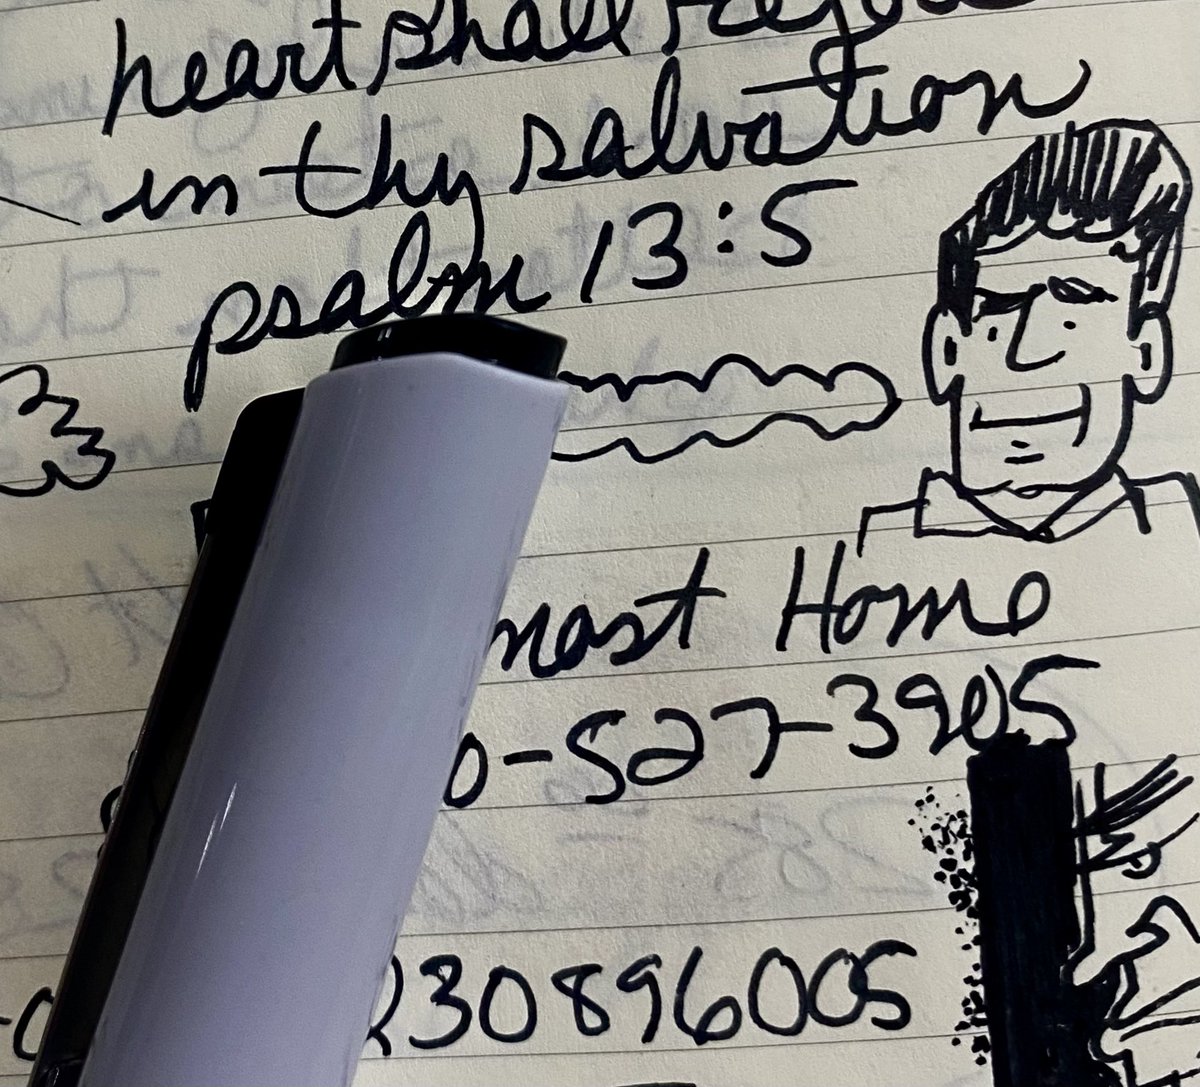 heart shall rejoice
in thy salvation
psalm 13:5
most Home
0-527-3905
230896005